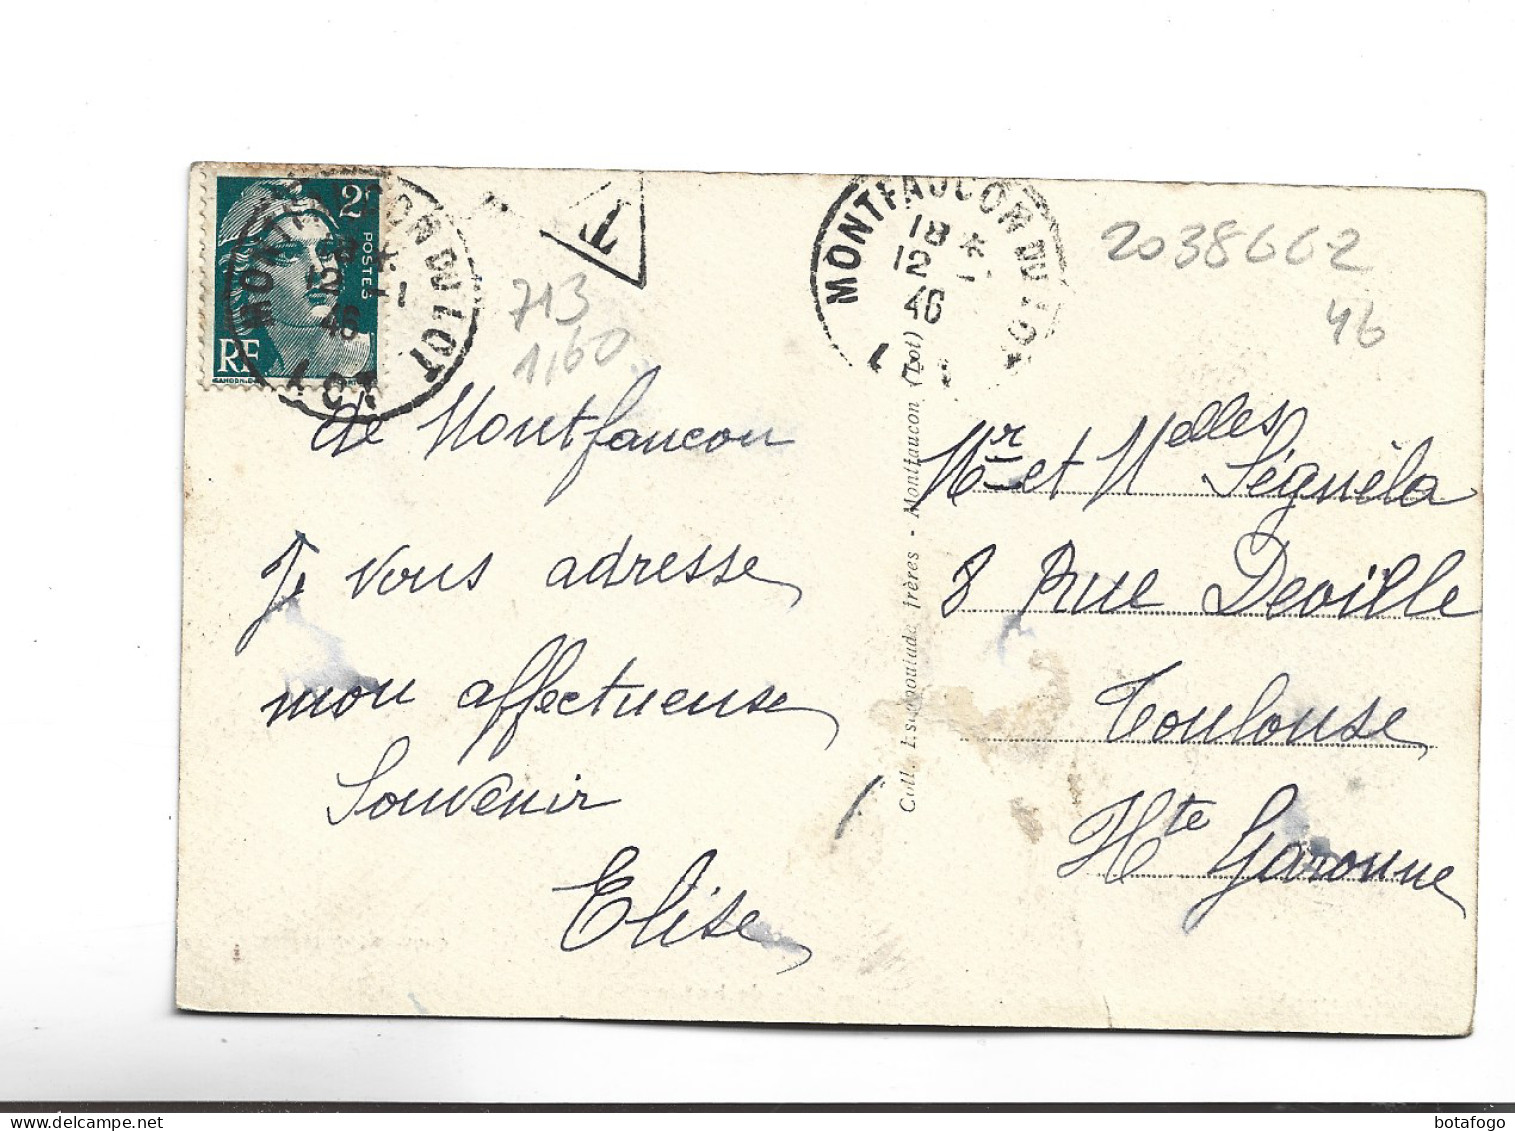 2F
POSTES
RF
MONTFAUCON DU LOT
18 *
12 -1
46
LOT
T
MONTFAUCON DU LOT
18 *
12 -1
46
2038662
46
713
1,60
de Montfaucon
Je vous adresse
mon affectueuse
Souvenir
Elise
frères - Montfaucon (Lot)
Mr et Melles Séguéla
8 Rue Deville
Toulouse
Hte Garonne
botafogo